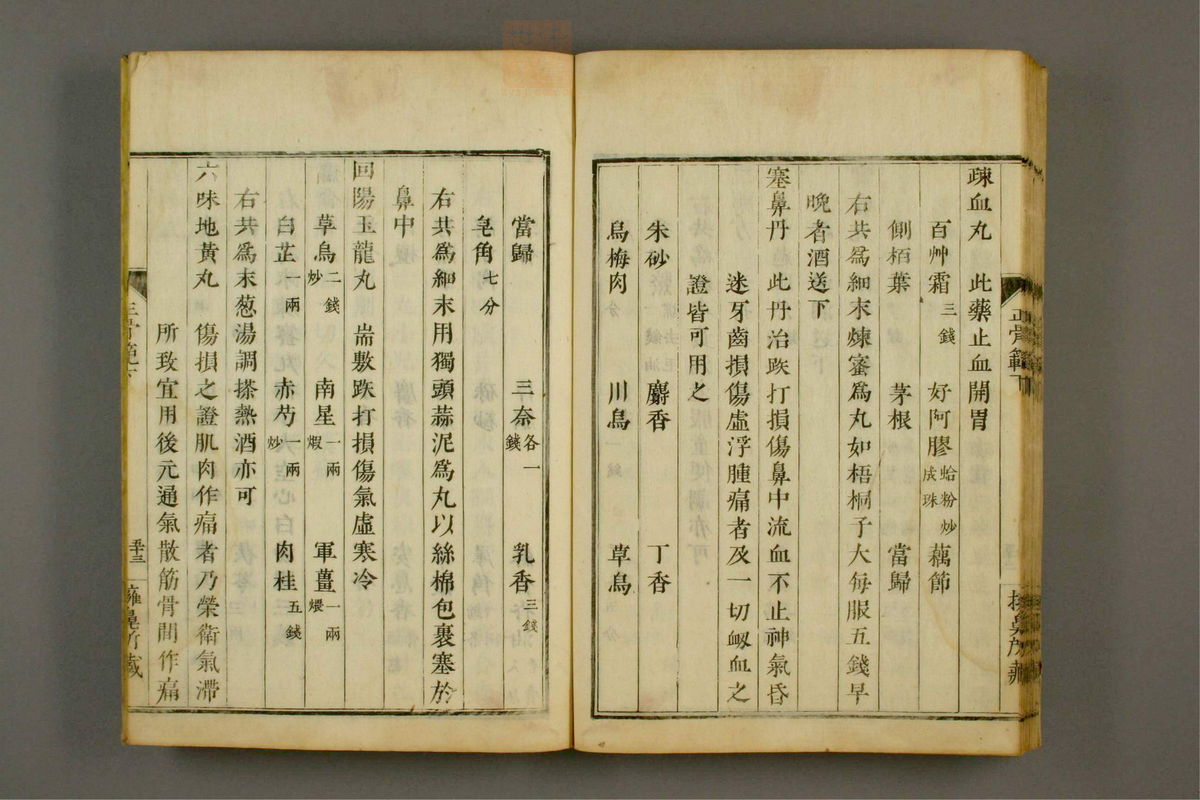 疎血丸　此藥止血開胃
百艸霜三錢　好阿膠蛤粉炒成珠　藕節
側栢葉　茅根　當歸
右共爲細末煉蜜爲丸如梧桐子大每服五錢早
晚者酒送下
塞鼻丹　此丹治跌打損傷鼻中流血不止神氣昏
迷牙齒損傷虛浮腫痛者及一切衂血之
證皆可用之
朱砂　麝香　丁香
烏梅肉　川烏　草烏
當歸　三奈各一錢　乳香三錢
皂角七分
右共爲細末用獨頭蒜泥爲丸以絲棉包裹塞於
鼻中
回陽玉龍丸　耑敷跌打損傷氣虛寒冷
草烏二錢炒　南星一兩煆　軍薑一兩煨
白芷一兩　赤芍一兩炒　肉桂五錢
右共爲末葱湯調搽熱酒亦可
六味地黃丸　傷損之證肌肉作痛者乃榮衛氣滯
所致宜用後元通氣散筋骨間作痛
正骨範下